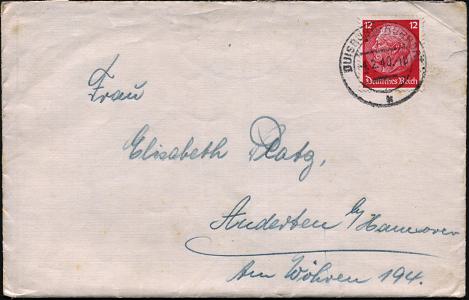 12 12
Deutsches Reich
DUISBURG
2.40.-18
Frau
Elisabeth Platz,
Anderten b/Hannover
Am Wöhren 194.